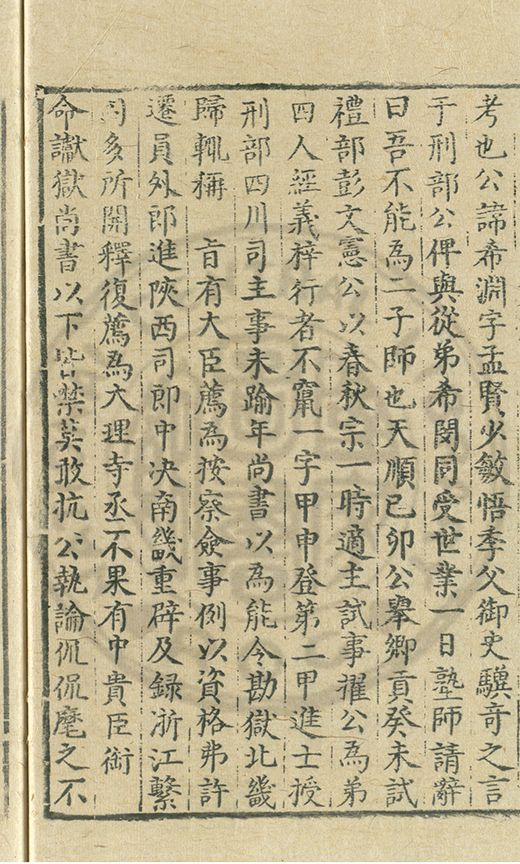 考也公諱希淵字孟賢少敏悟季父御史驥竒之言
于刑部公俾與從弟希閔同受世業一日塾師請辭
曰吾不能為二子師也天順已卯公舉鄉貢癸未試
禮部彭文憲公以春秋宗一時適主試事擢公為弟
四人經義梓行者不竄一字甲申登第二甲進士授
刑部四川司主事未踰年尚書以為能令勘獄北畿
歸輒稱　旨有大臣薦為按察僉事例以資格弗許
遷員外郎進陝西司郎中决南畿重辟及録浙江繫
囚多所開釋復薦為大理寺丞不果有中貴臣銜
命讞獄尚書以下皆禁莫敢抗公執論侃侃麾之不